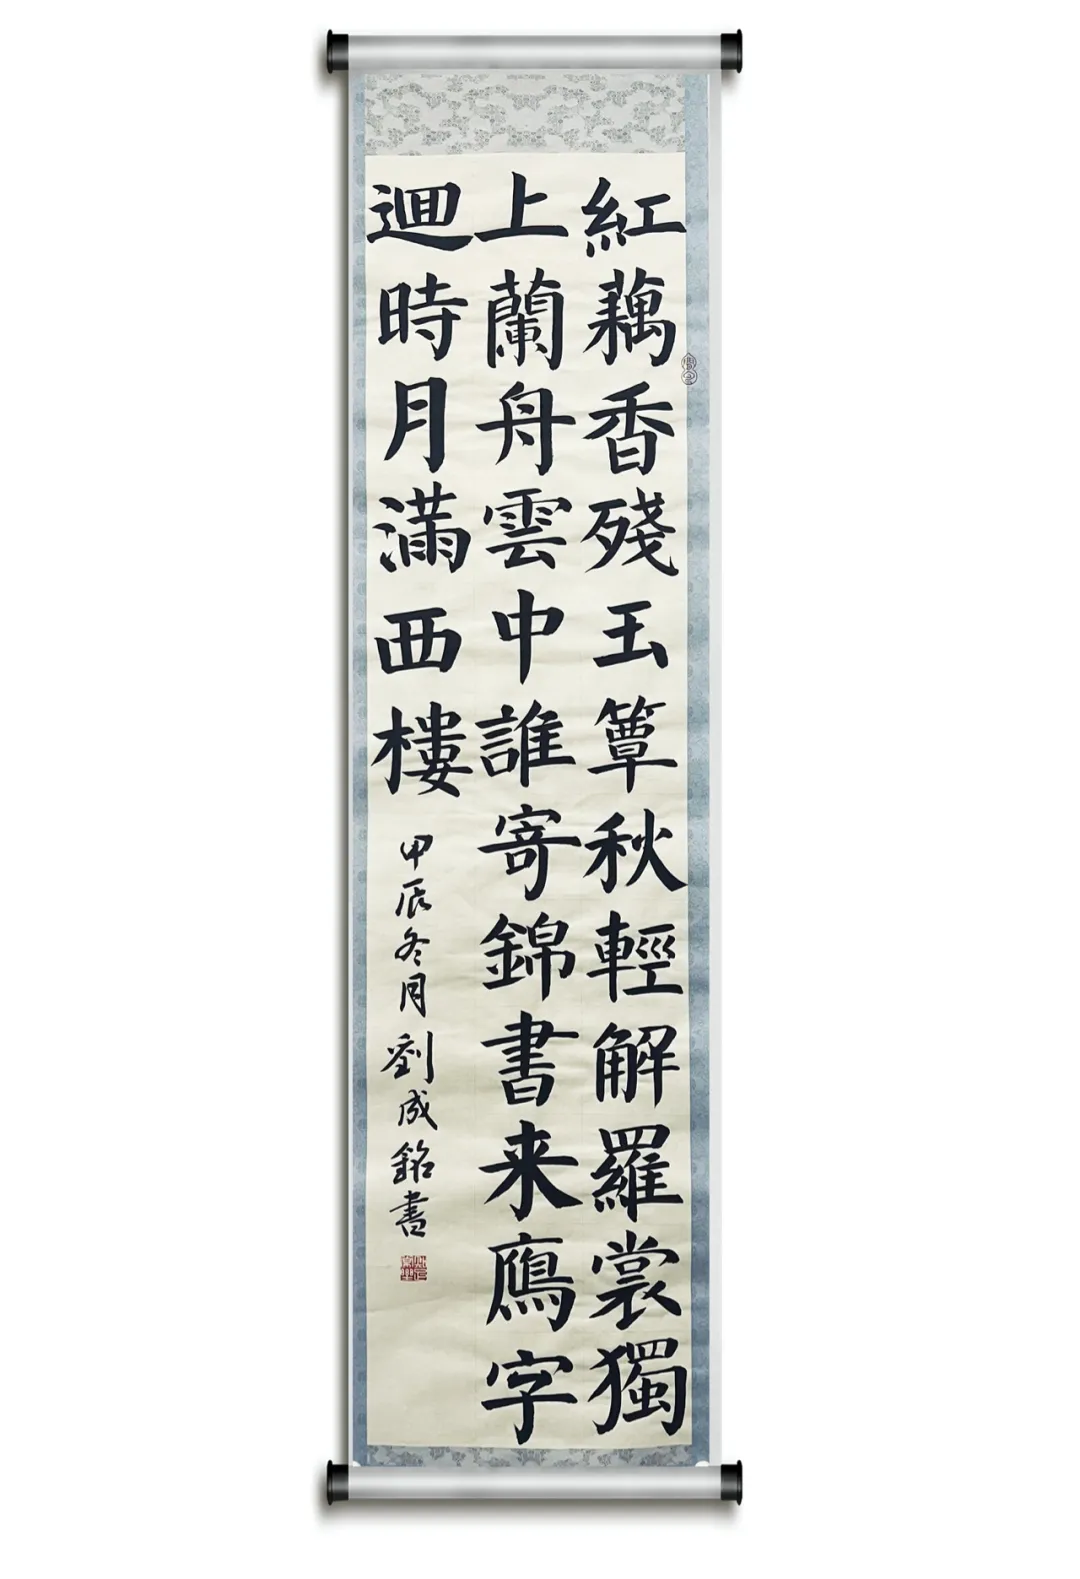 紅藕香殘玉簟秋輕解羅裳獨
上蘭舟雲中誰寄錦書来鴈字
迴時月滿西樓
甲辰冬月劉成銘書